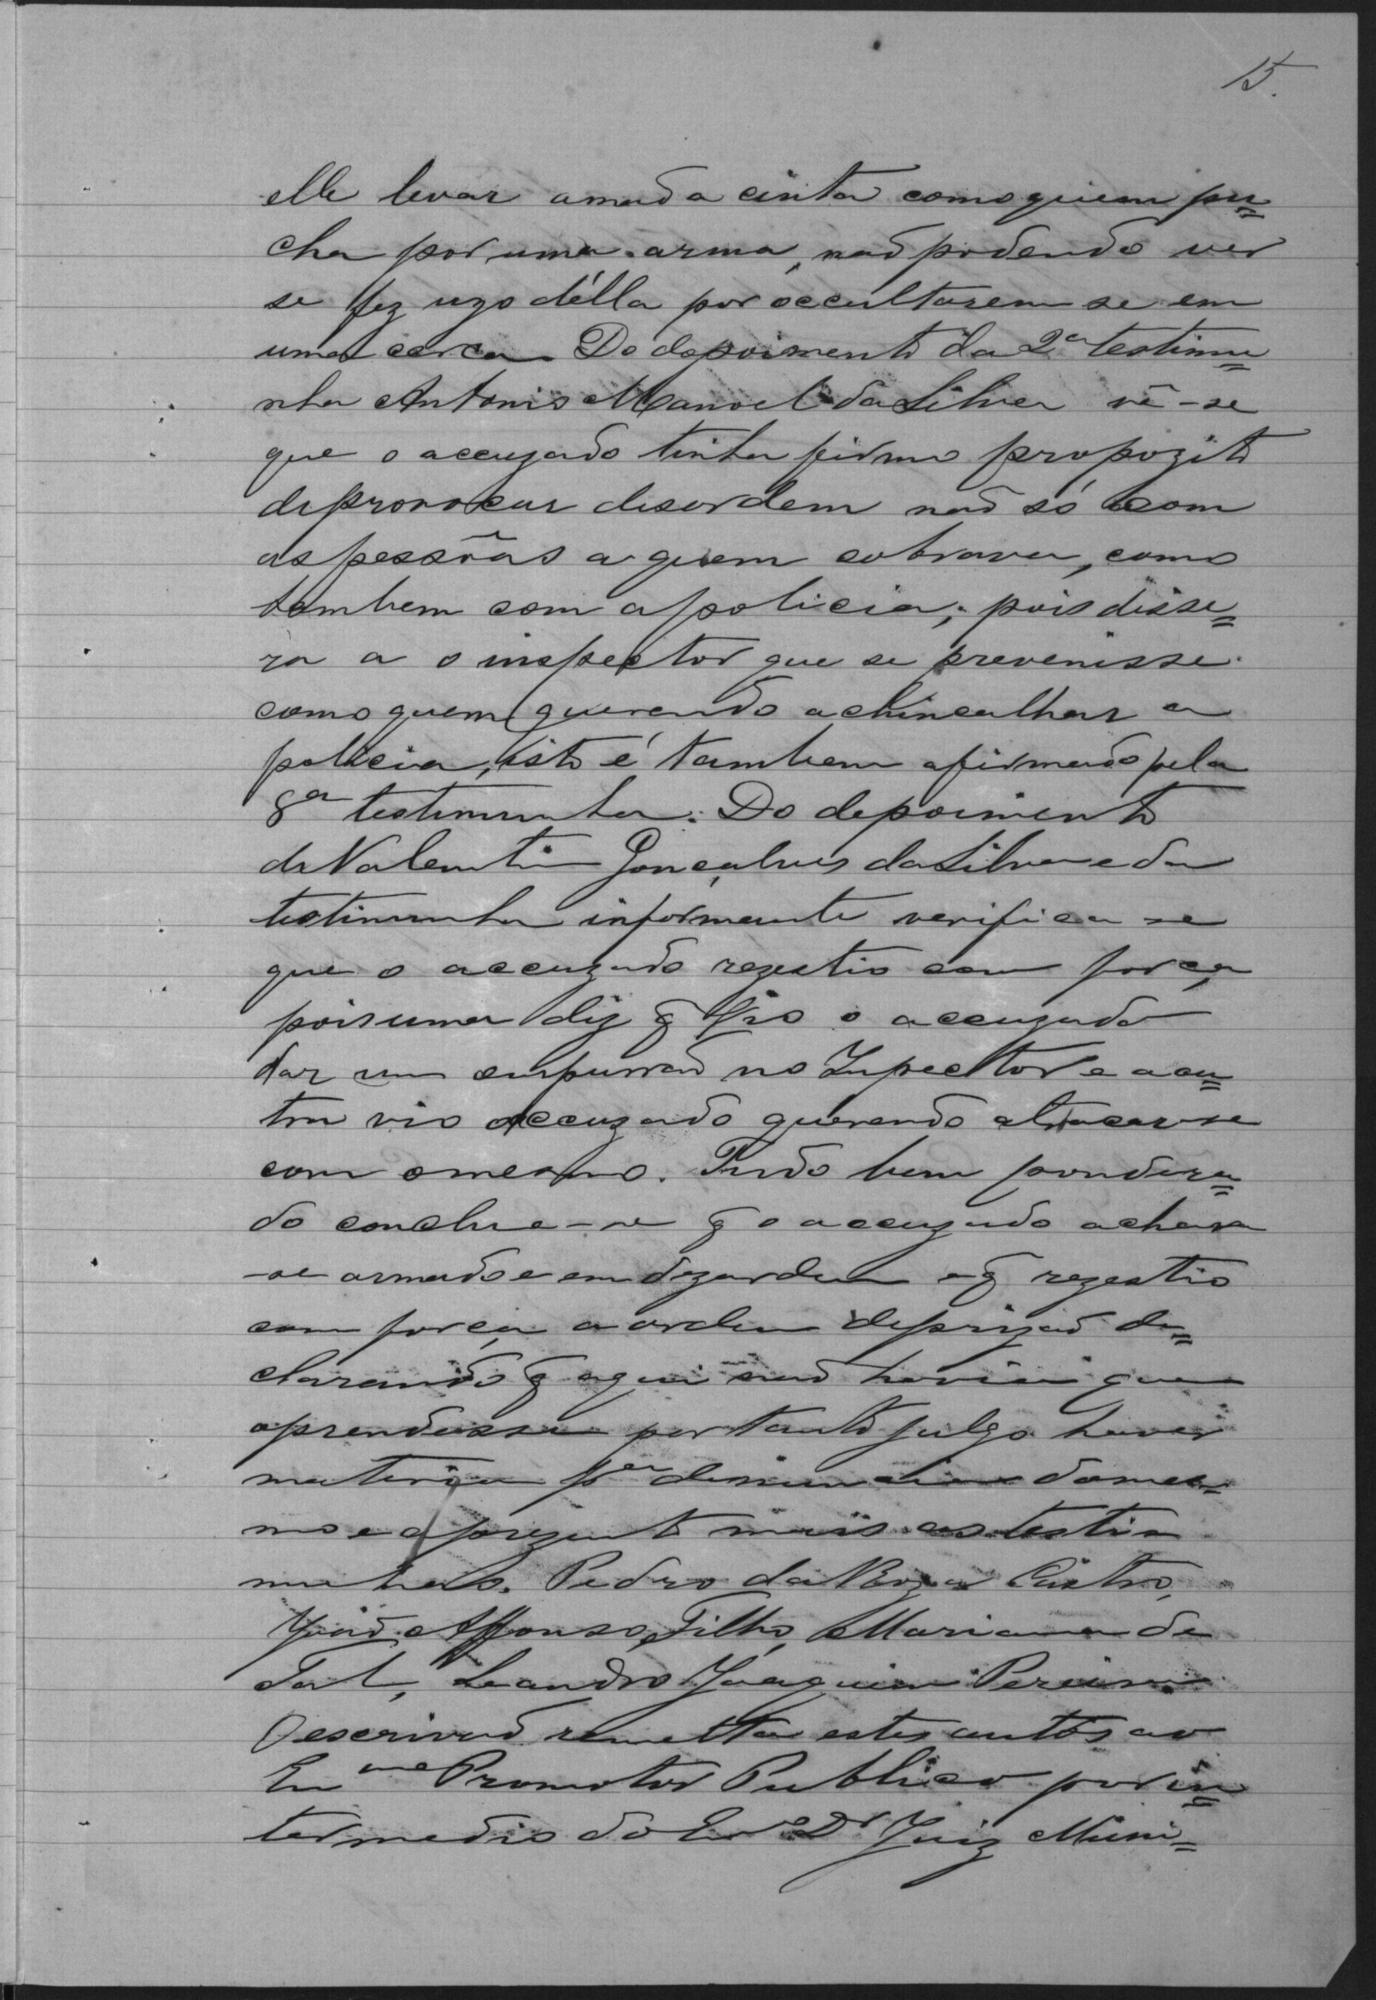 15.
elle levar a mad a cinta como quem pu=
cha por uma arma, nad podendo ver
se fez uzo d'élla por occultarem se em
uma cerca. Do depoimento da 2ª testimu=
nha Antonio Manoel da Silva vê-se
que o accuzado tinha firme propozito
de provocar disordem nad só com
as pessôas a quem cobrava, como
tambem com a policia; pois disse=
ra a o inspector que se prevenisse
como quem querendo achincalhar a
policia, isto é tambem afirmado pela
8ª testimunha. Do depoimento
de Valentim Gonçalves da Silva e da
testimunha informante verifica se
que o accuzado rezestio com força,
pois uma diz q̃ vio o accuzado
dar um empurrad no Inspector e a ou=
tra vio accuzado querendo atracar-se
com o mesmo. Tudo bem pondera=
do conclue-se q̃ o accuzado achava
-se armado e em dezordem e q̃ rezestio
com força a ordem de prizad de=
clarando q̃ aqui nad havia quem
o prendesse portanto julgo haver
materia pª denuncia do mes=
mo e aprezento mais as testi
munhas. Pedro da Castro,
Affonso Filho, Marianna de
Tal, Leandro Joaquim Pereira.
O escrivad remetta estes autos ao
Promotor Publico por in=
termedio do Dr Juiz Muni=